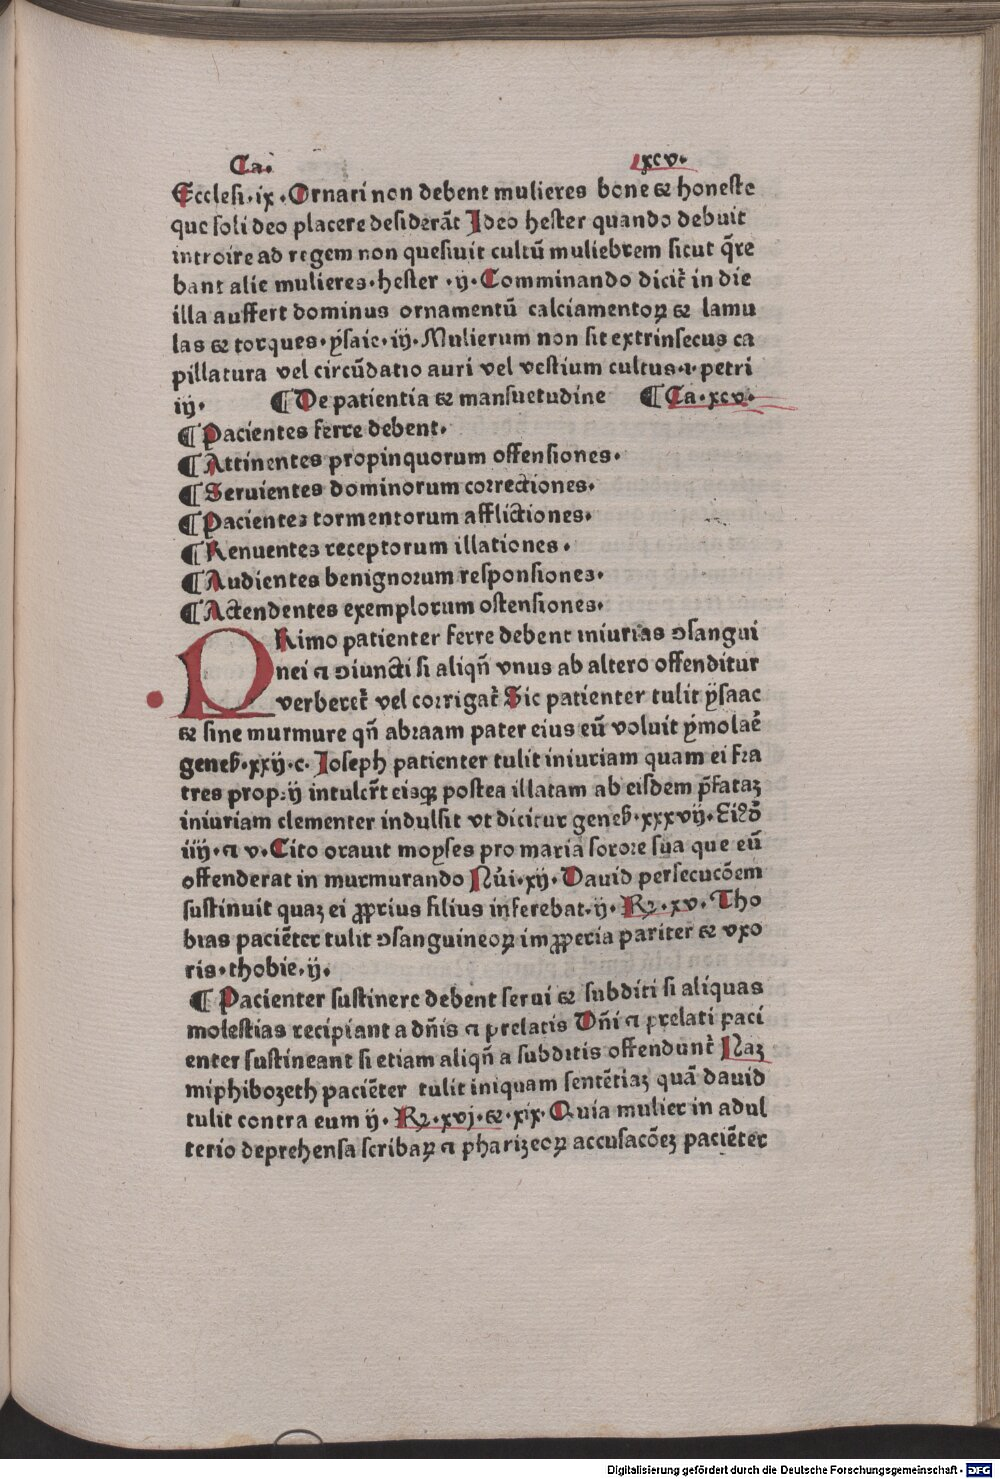 Ca. lxcv.
Ecclesi.ix.Ornari non debent mulieres bone ⁊ honeste
que soli deo placere desiderāt Ideo hester quando debuit
introire ad regem non quesiuit cultū muliebrem sicut q̄re
bant alie mulieres.hester .ij.Comminando dicit̄ in die
illa auffert dominus ornamentū calciamentoꝝ ⁊ lamu
las ⁊ torques.ysaie.iij.Mulierum non sit extrinsecus ca
pillatura vel circūdatio auri vel vestium cultus.1.petri
iij. ¶De patientia ⁊ mansuetudine ¶Ca.xcv.
¶Pacientes ferre debent.
¶Attinentes propinquorum offensiones.
¶Seruientes dominorum correctiones.
¶Pacientes tormentorum afflictiones.
¶Renuentes receptorum illationes.
¶Audientes benignorum responsiones.
¶Actendentes exemplorum ostensiones.
PRimo patienter ferre debent iniurias ꝯsangui
nei ⁊ ꝯiuncti si aliqn̄ vnus ab altero offenditur
verberet̄ vel corrigat̄ Sic patienter tulit ysaac
⁊ sine murmure qn̄ abraam pater eius eū voluit ymolaē
geneß.xxij.c. Ioseph patienter tulit iniuriam quam ei fra
tres proprij intuler̄t eisqꝫ postea illatam ab eisdem p̄fataꝫ
iniuriam clementer indulsit vt dicitur geneß.xxxvij.Eisdē
iiij.⁊ v.Cito orauit moyses pro maria sorore sua que eū
offenderat in murmurando Nūi.xij.Dauid persecucōem
sustinuit quaꝫ ei ꝓprius filius inferebat.ij.Rꝫ.xv.Tho
bias paciēter tulit ꝯsanguineoꝝ imꝓperia pariter ⁊ vxo
ris.thobie.ij.
¶Pacienter sustinere debent serui ⁊ subditi si aliquas
molestias recipiant a dn̄is ⁊ prelatis Dn̄i ⁊ prelati paci
enter sustineant si etiam aliqn̄ a subditis offendunt̄ Naꝫ
miphibozeth paciēter tulit iniquam sentētiaꝫ quā dauid
tulit contra eum ij.Rꝫ.xvj.⁊.xix.Quia mulier in adul
terio deprehensa scribaꝝ ⁊ pharizeoꝝ accusacōeꝫ paciēter
Digitalisierung gefördert durch die Deutsche Forschungsgemeinschaft - DFG